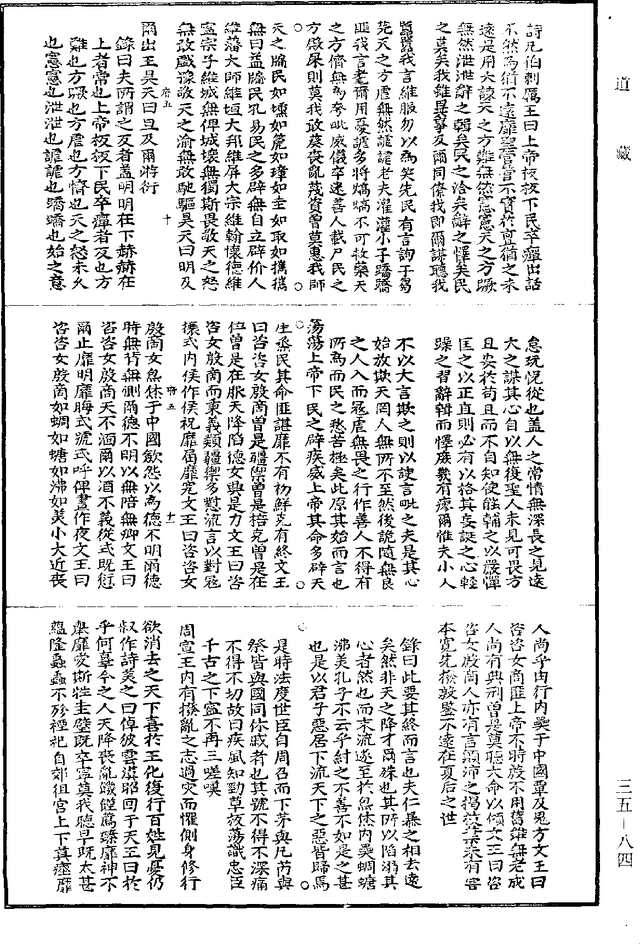 道藏
詩凡伯刺厲王曰上帝板板下民卒癉出話
不然為猶不遠靡聖管管不實於亶猶之未
遠是用大諫天之方難無然憲憲天之方蹶
無然泄泄辭之輯矣民之洽矣辭之懌矣民
之莫矣我雖異事及爾同僚我即爾謀聽我
囂囂我言維服勿以為笑先民有言詢于芻
蕘天之方虐無然謔謔老夫灌灌小子蹻蹻
匪我言耄爾用憂謔多將熇熇不可救藥天
之方懠無為夸毗威儀卒迷善人載尸民之
方殿屎則莫我敢葵喪亂蔑資曾莫惠我師
天之牖民如壎如篪如璋如圭如取如攜攜
無曰益牖民孔易民之多辟無自立辟价人
維藩大師維垣大邦維屏大宗維翰懷德維
寧宗子維城無俾城壞無獨斯畏敬天之怒
無敢戲豫敬天之渝無敢馳驅昊天曰明及
府五 十
爾出王昊天曰旦及爾游衍
錄曰夫所謂之反者蓋明明在下赫赫在
上者常也上帝板板下民卒癉者反也方
難也方蹶也方虐也方懠也天之怒未久
也憲憲也泄泄也謔謔也蹻蹻也始之意
怠玩愒從也蓋人之常情無深長之見遠
大之謀其心自以無復聖人未見可畏方
且安於苟且而不自知使能輔之以嚴憚
匡之以正直則必有以格其妄誕之心輕
躁之習辭輯而懌庶幾有瘳爾惟夫小人
不以大言欺之則以諛言毗之夫是其心
始放欺天罔人無所不至然後詭隨無良
之人入而寇虐無畏之行作善人不得有
所為而民之愁苦極矣此原其始而言也
蕩蕩上帝下民之辟疾威上帝其命多辟天
生烝民其命匪諶靡不有初鮮克有終文王
曰咨咨女殷商曾是彊禦曾是掊克曾是在
位曾是在服天降滔德女興是力文王曰咨
咨女殷商而秉義類彊禦多懟流言以對寇
攘式內侯作侯祝靡屆靡究文王曰咨咨女
府五 十一
殷商女炰烋于中國斂怨以為德不明爾德
時無背無側爾德不明以無陪無卿文王曰
咨咨女殷商天不湎爾以酒不義從式既愆
爾止靡明靡晦式號式呼俾晝作夜文王曰
咨咨女殷商如蜩如螗如沸如羹小大近喪
人尚乎由行內奰于中國覃及鬼方文王曰
咨咨女殷商匪上帝不時殷不用舊雖無老成
人尚有典刑曾是莫聽大命以傾文王曰咨
咨女殷商人亦有言顛沛之揭枝葉未有害
本實先撥殷鑒不遠在夏后之世
錄曰此要其終而言也夫仁暴之相去遠
矣然非天之降才爾殊也其所以陷溺其
心者然也而末流遂至於炰烋內奰蜩螗
沸羹孔子不云乎紂之不善不如是之甚
也是以君子惡居下流天下之惡皆歸焉
是時法度世臣自周召而下芮與凡芮與
祭皆與國同休戚者也其號不得不深痛
不得不切故曰疾風知勁草板蕩識忠臣
千古之下寧不再三嗟嘆
周宣王內有撥亂之志遇灾而懼側身修行
欲消去之天下喜於王化復行百姓見憂仍
叔作詩美之曰倬彼雲漢昭回于天王曰於
乎何辜今之人天降喪亂饑饉薦臻靡神不
舉靡愛斯牲圭璧既卒寧莫我聽旱既太甚
蘊隆蟲蟲不殄禋祀自郊徂宮上下奠瘞靡
三五－八四